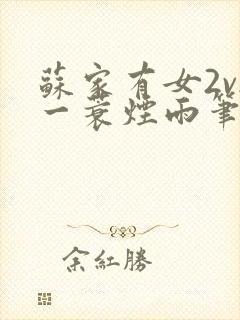 蘇家有女2v
一蓑煙雨筆
余紅勝